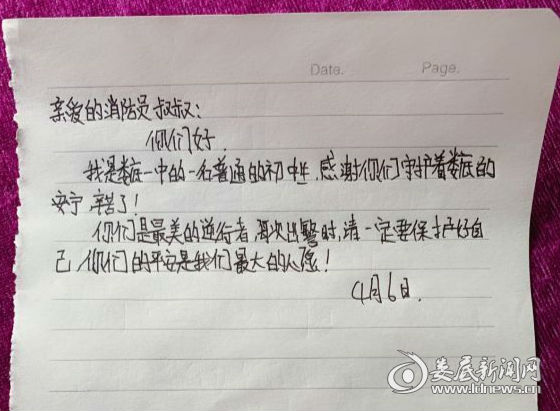 Date. Page.
亲爱的消防员叔叔：
你们好.
我是娄底一中的一名普通的初中生.感谢你们守护着娄底的
安宁 辛苦了！
你们是最美的逆行者,再次出警时,请一定要保护好自
己,你们的平安是我们最大的心愿！
4月6日.
娄底新闻网
www.ldnews.cn